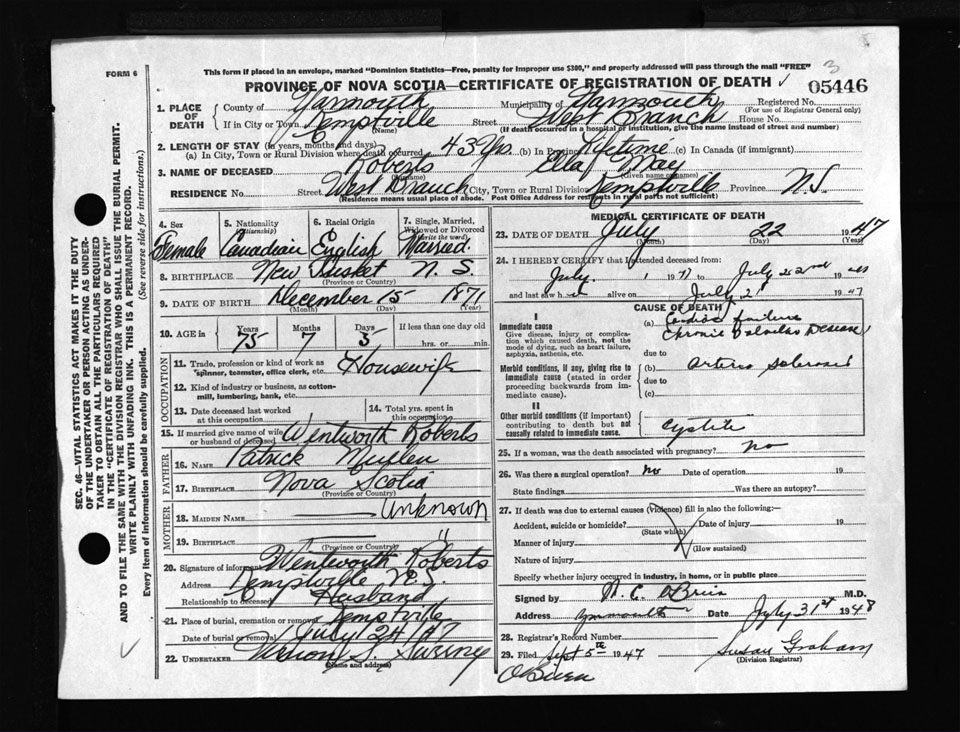 FORM 6
This form if placed in an envelope, marked "Dominion Statistics—Free, penalty for improper use $300," and properly addressed will pass through the mail "FREE"
3
PROVINCE OF NOVA SCOTIA—CERTIFICATE OF REGISTRATION OF DEATH
05446
1. PLACE OF DEATH
County of Yarmouth Municipality of Yarmouth Registered No.
(For use of Registrar General only)
If in City or Town Kemptville Street West Branch House No.
(Name) (If death occurred in a hospital or institution, give the name instead of street and number)
2. LENGTH OF STAY (in years, months and days)
(a) In City, Town or Rural Division where death occurred 43 Yrs (b) In Province Lifetime (c) In Canada (if immigrant)
3. NAME OF DECEASED Roberts Ella May
(Surname) (Given name or names)
RESIDENCE No. Street West Branch City, Town or Rural Division Kemptville Province N.S.
(Residence means usual place of abode. Post Office Address for residents in rural parts not sufficient)
4. Sex Female
5. Nationality (Citizenship) Canadian
6. Racial Origin English
7. Single, Married, Widowed or Divorced (Write the word) Married.
8. BIRTHPLACE New Tusket N.S.
(Province or Country)
9. DATE OF BIRTH December 15 1871
(Month) (Day) (Year)
10. AGE in Years 75 Months 7 Days 5 If less than one day old hrs. or min.
OCCUPATION
11. Trade, profession or kind of work as spinner, teamster, office clerk, etc. Housewife
12. Kind of industry or business, as cotton-mill, lumbering, bank, etc.
13. Date deceased last worked at this occupation
14. Total yrs. spent in this occupation
15. If married give name of wife or husband of deceased Wentworth Roberts
FATHER
16. NAME Patrick Mullen
17. BIRTHPLACE Nova Scotia
(Province or Country)
MOTHER
18. MAIDEN NAME Unknown
19. BIRTHPLACE "
(Province or Country)
20. Signature of informant Wentworth Roberts
Address Kemptville N.S.
Relationship to deceased Husband
21. Place of burial, cremation or removal Kemptville
Date of burial or removal July 24/47
22. UNDERTAKER
(Name and address)
MEDICAL CERTIFICATE OF DEATH
23. DATE OF DEATH July 22 1947
(Month) (Day) (Year)
24. I HEREBY CERTIFY that I attended deceased from
July 1 19 to July 22nd 19
and last saw h alive on July 21 1947
CAUSE OF DEATH
I
Immediate cause
Give disease, injury or complication which caused death, not the mode of dying, such as heart failure, asphyxia, asthenia, etc.
(a) Cardiac failure
Chronic Valvular Disease
due to
Morbid conditions, if any, giving rise to immediate cause (stated in order proceeding backwards from immediate cause).
(b) Arterio Sclerosis
due to
(c)
II
Other morbid conditions (if important) contributing to death but not causally related to immediate cause.
25. If a woman, was the death associated with pregnancy? No
26. Was there a surgical operation? No Date of operation 19
State findings Was there an autopsy?
27. If death was due to external causes (violence) fill in also the following:—
Accident, suicide or homicide? Date of injury 19
(State which)
Manner of injury
(How sustained)
Nature of injury
Specify whether injury occurred in industry, in home, or in public place
Signed by C. O'Brien M.D.
Address Yarmouth Date July 31st 1948
28. Registrar's Record Number
29. Filed Sept 5th 1947 Susan Graham
(Division Registrar)
O'Brien
SEC. 46—VITAL STATISTICS ACT MAKES IT THE DUTY
OF THE UNDERTAKER OR PERSON ACTING AS UNDER-
TAKER TO OBTAIN ALL THE PARTICULARS REQUIRED
IN THE "CERTIFICATE OF REGISTRATION OF DEATH"
AND TO FILE THE SAME WITH THE DIVISION REGISTRAR WHO SHALL ISSUE THE BURIAL PERMIT.
WRITE PLAINLY WITH UNFADING INK. THIS IS A PERMANENT RECORD.
Every item of information should be carefully supplied. (See reverse side for instructions.)